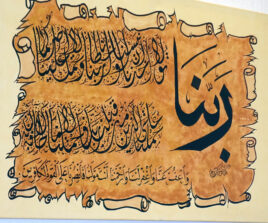 ربنا
لا تؤاخذنا إن نسينا أو أخطأنا ربنا ولا تحمل علينا إصرا كما
حملته على الذين من قبلنا ربنا ولا تحملنا ما لا طاقة لنا به
واعف عنا واغفر لنا وارحمنا أنت مولانا فانصرنا على القوم الكافرين